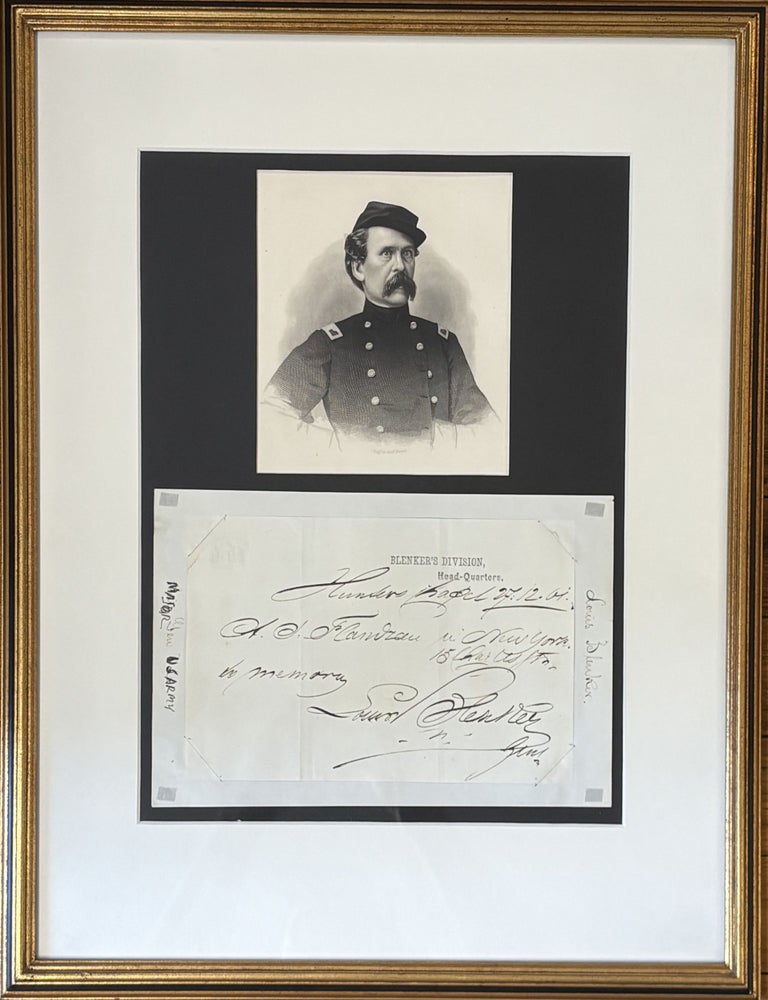 BLENKER'S DIVISION,
Head-Quarters.
Hunters 27.12.61.
A. S. Flandrau in New York.
15
in memory
Louis Blenker
Genl
MAJOR Gen US ARMY
Louis Blenker.